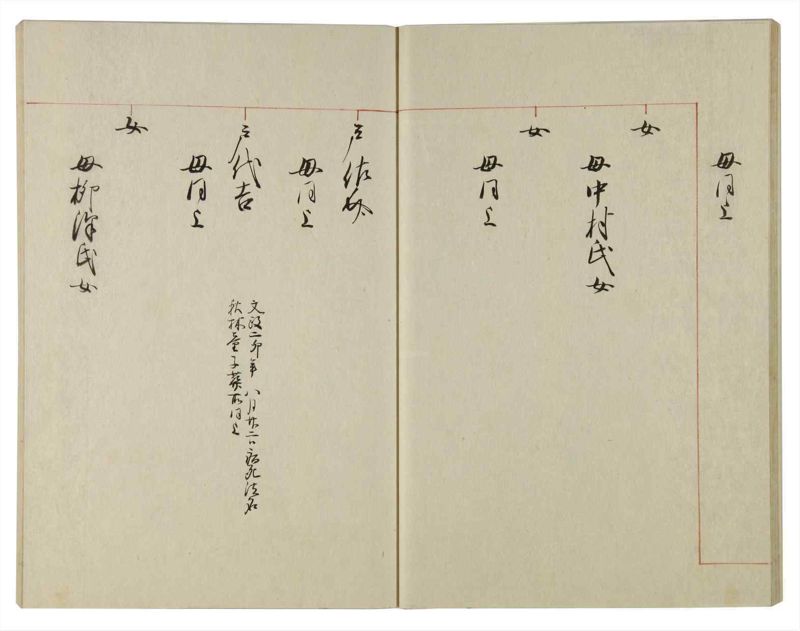 母同上
女
母中村氏女
女
母同上
戸佐攷
母同上
戸代吉
母同上
文政二卯年八月廿二日病死法名
秋林量子葬所同上
女
母柳澤氏女